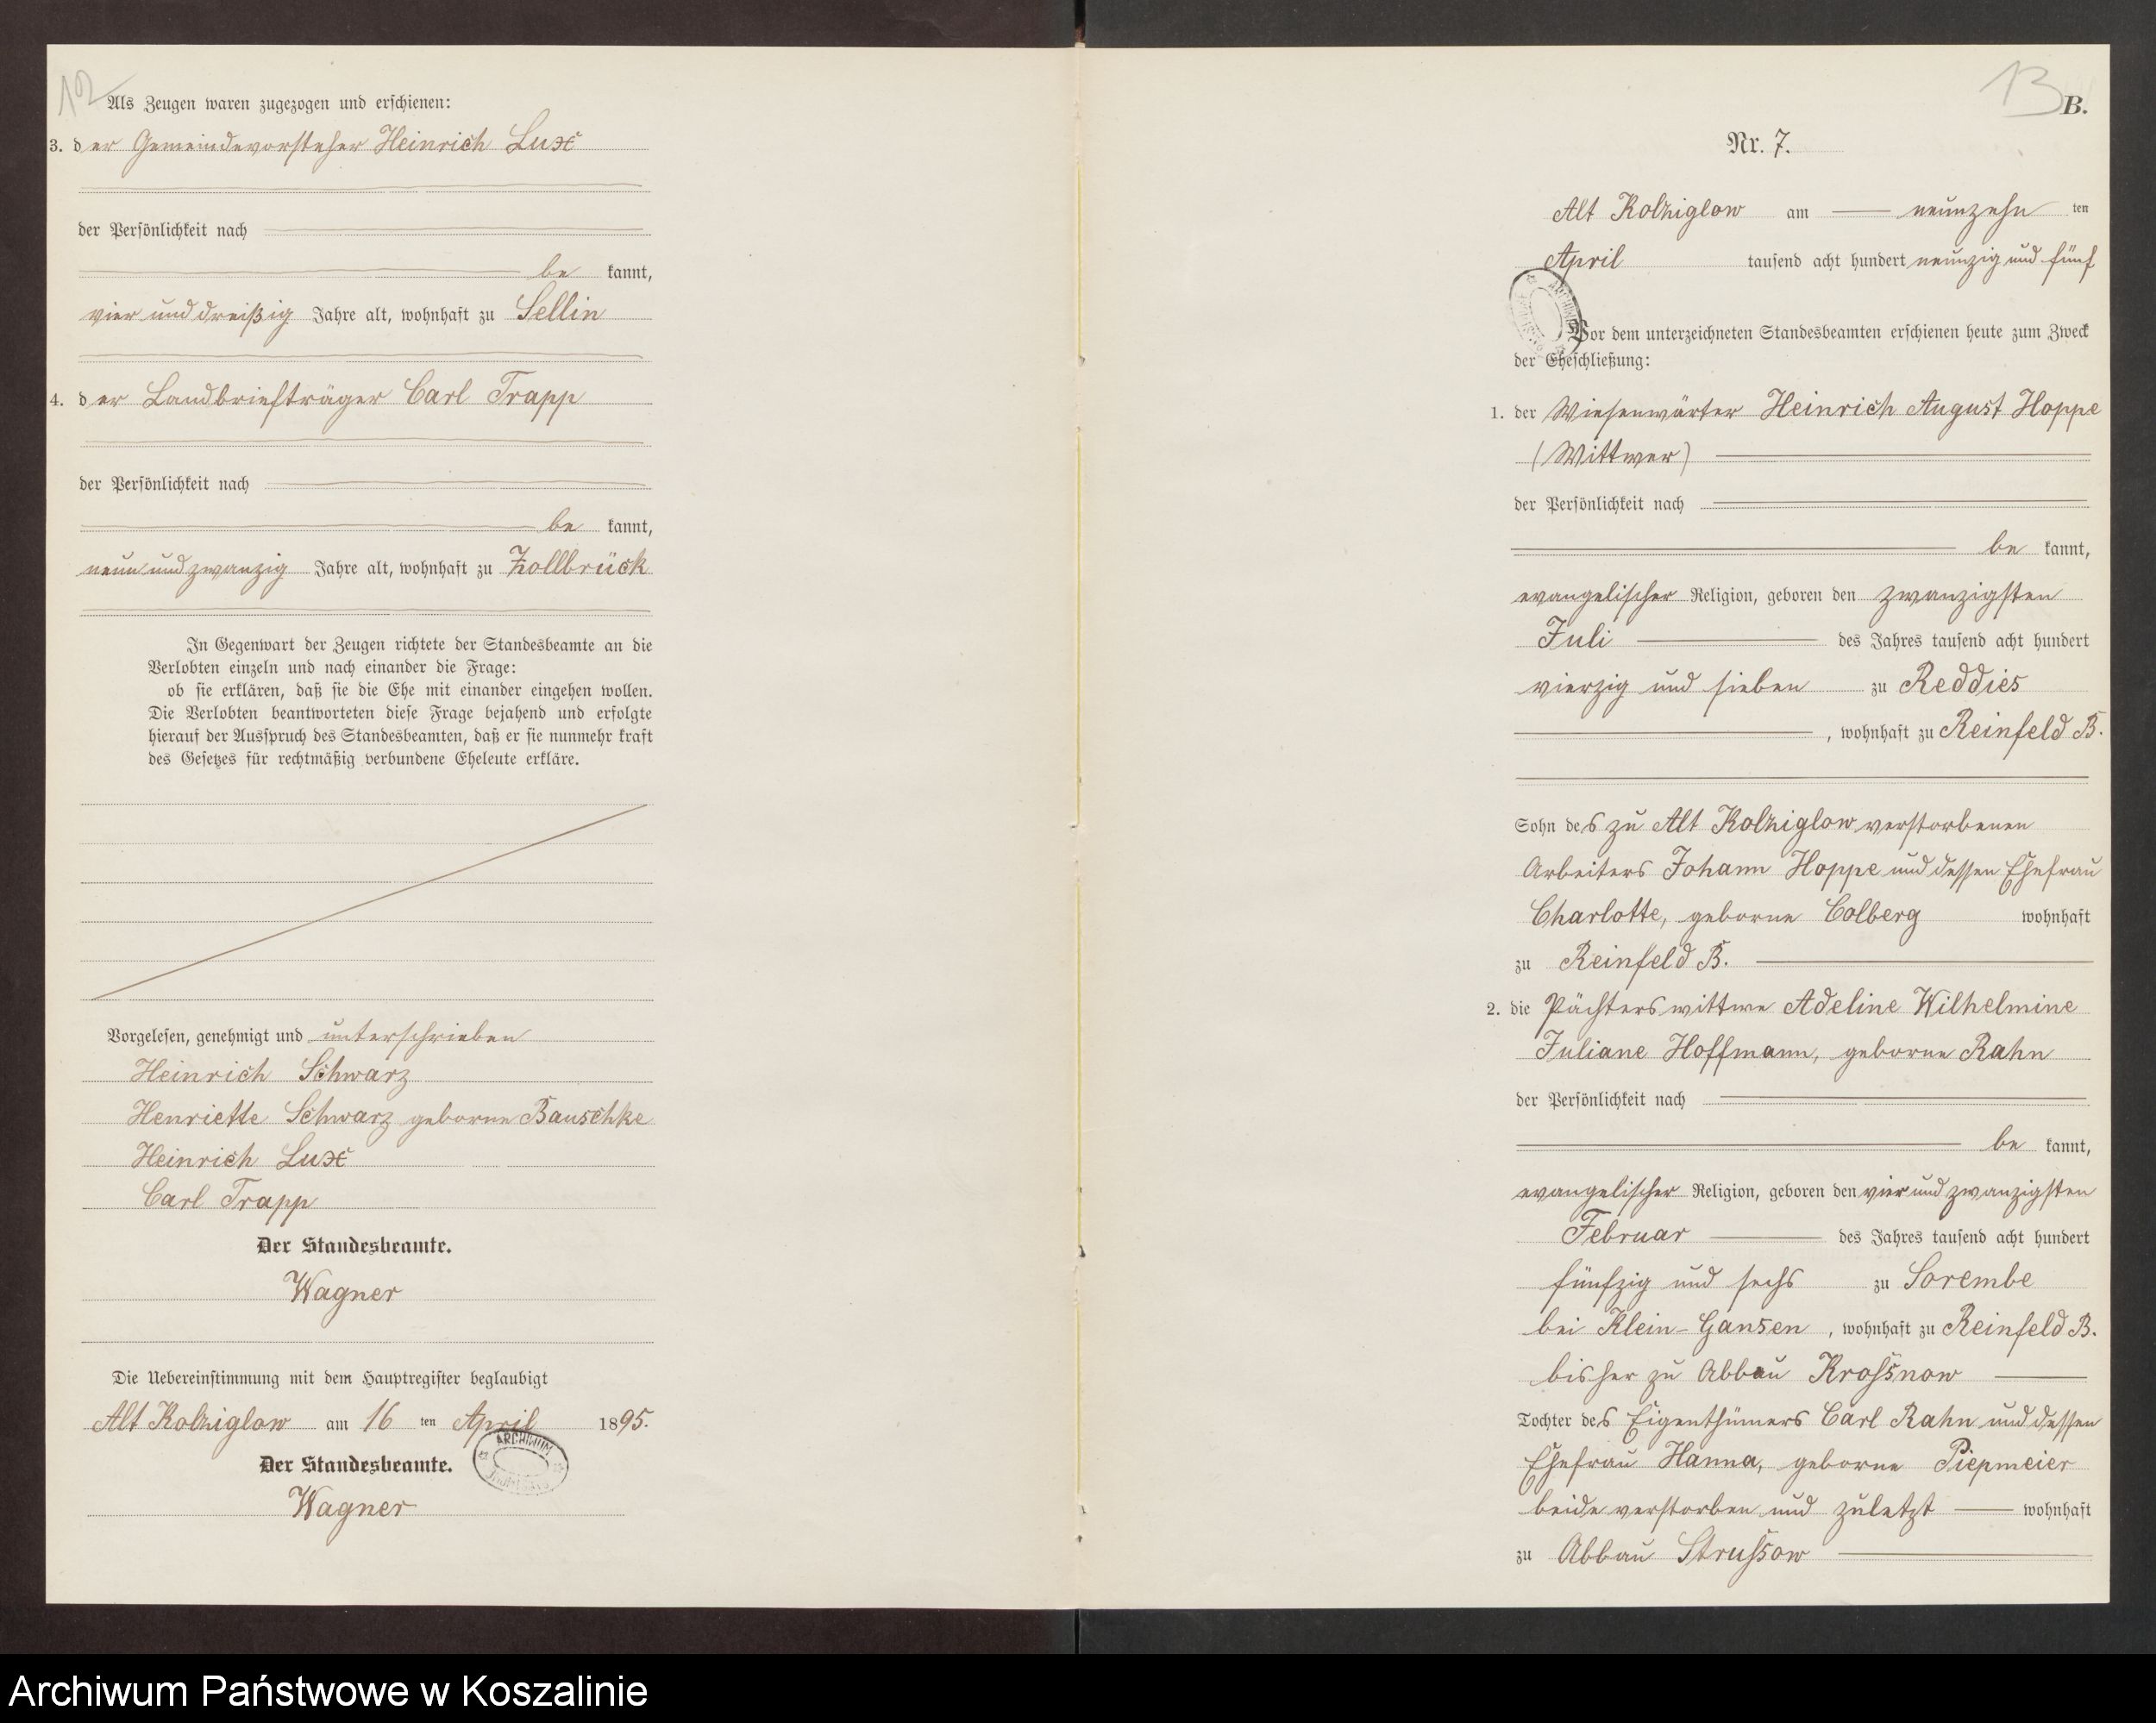 12
Als Zeugen waren zugezogen und erschienen:
3. der Gemeindevorsteher Heinrich Lux
der Persönlichkeit nach
be kannt,
vier und dreißig Jahre alt, wohnhaft zu Sellin
4. der Landbriefträger Carl Trapp
der Persönlichkeit nach
be kannt,
neun und zwanzig Jahre alt, wohnhaft zu Zollbrück
In Gegenwart der Zeugen richtete der Standesbeamte an die
Verlobten einzeln und nach einander die Frage:
ob sie erklären, daß sie die Ehe mit einander eingehen wollen.
Die Verlobten beantworteten diese Frage bejahend und erfolgte
hierauf der Ausspruch des Standesbeamten, daß er sie nunmehr kraft
des Gesetzes für rechtmäßig verbundene Eheleute erkläre.
Vorgelesen, genehmigt und unterschrieben
Heinrich Schwarz
Henriette Schwarz geborne Bauschke
Heinrich Lux
Carl Trapp
Der Standesbeamte.
Wagner
Die Uebereinstimmung mit dem Hauptregister beglaubigt
Alt Kolziglow am 16 ten April 1895.
ARCHIWUM
Der Standesbeamte.
Wagner
13
B.
Nr. 7.
Alt Kolziglow am neunzehn ten
April tausend acht hundert neunzig und fünf
Vor dem unterzeichneten Standesbeamten erschienen heute zum Zweck
der Eheschließung:
1. der Wiesenwärter Heinrich August Hoppe
(Wittwer)
der Persönlichkeit nach
be kannt,
evangelischer Religion, geboren den zwanzigsten
Juli des Jahres tausend acht hundert
vierzig und sieben zu Reddies
, wohnhaft zu Reinfeld B.
Sohn des zu Alt Kolziglow verstorbenen
Arbeiters Johann Hoppe und dessen Ehefrau
Charlotte, geborne Colberg wohnhaft
zu Reinfeld B.
2. die Pächterswittwe Adeline Wilhelmine
Juliane Hoffmann, geborne Rahn
der Persönlichkeit nach
be kannt,
evangelischer Religion, geboren den vier und zwanzigsten
Februar des Jahres tausend acht hundert
fünfzig und sechs zu Sorembe
bei Klein-Gansen, wohnhaft zu Reinfeld B.
bisher zu Abbau Krossnow
Tochter des Eigenthümers Carl Rahn und dessen
Ehefrau Hanna, geborne Piepmeier
beide verstorben und zuletzt wohnhaft
zu Abbau Strussow
Archiwum Państwowe w Koszalinie